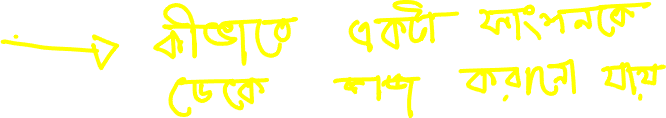 কীভাবে একটা ফাংশনকে
ডেকে কাজ করানো যায়